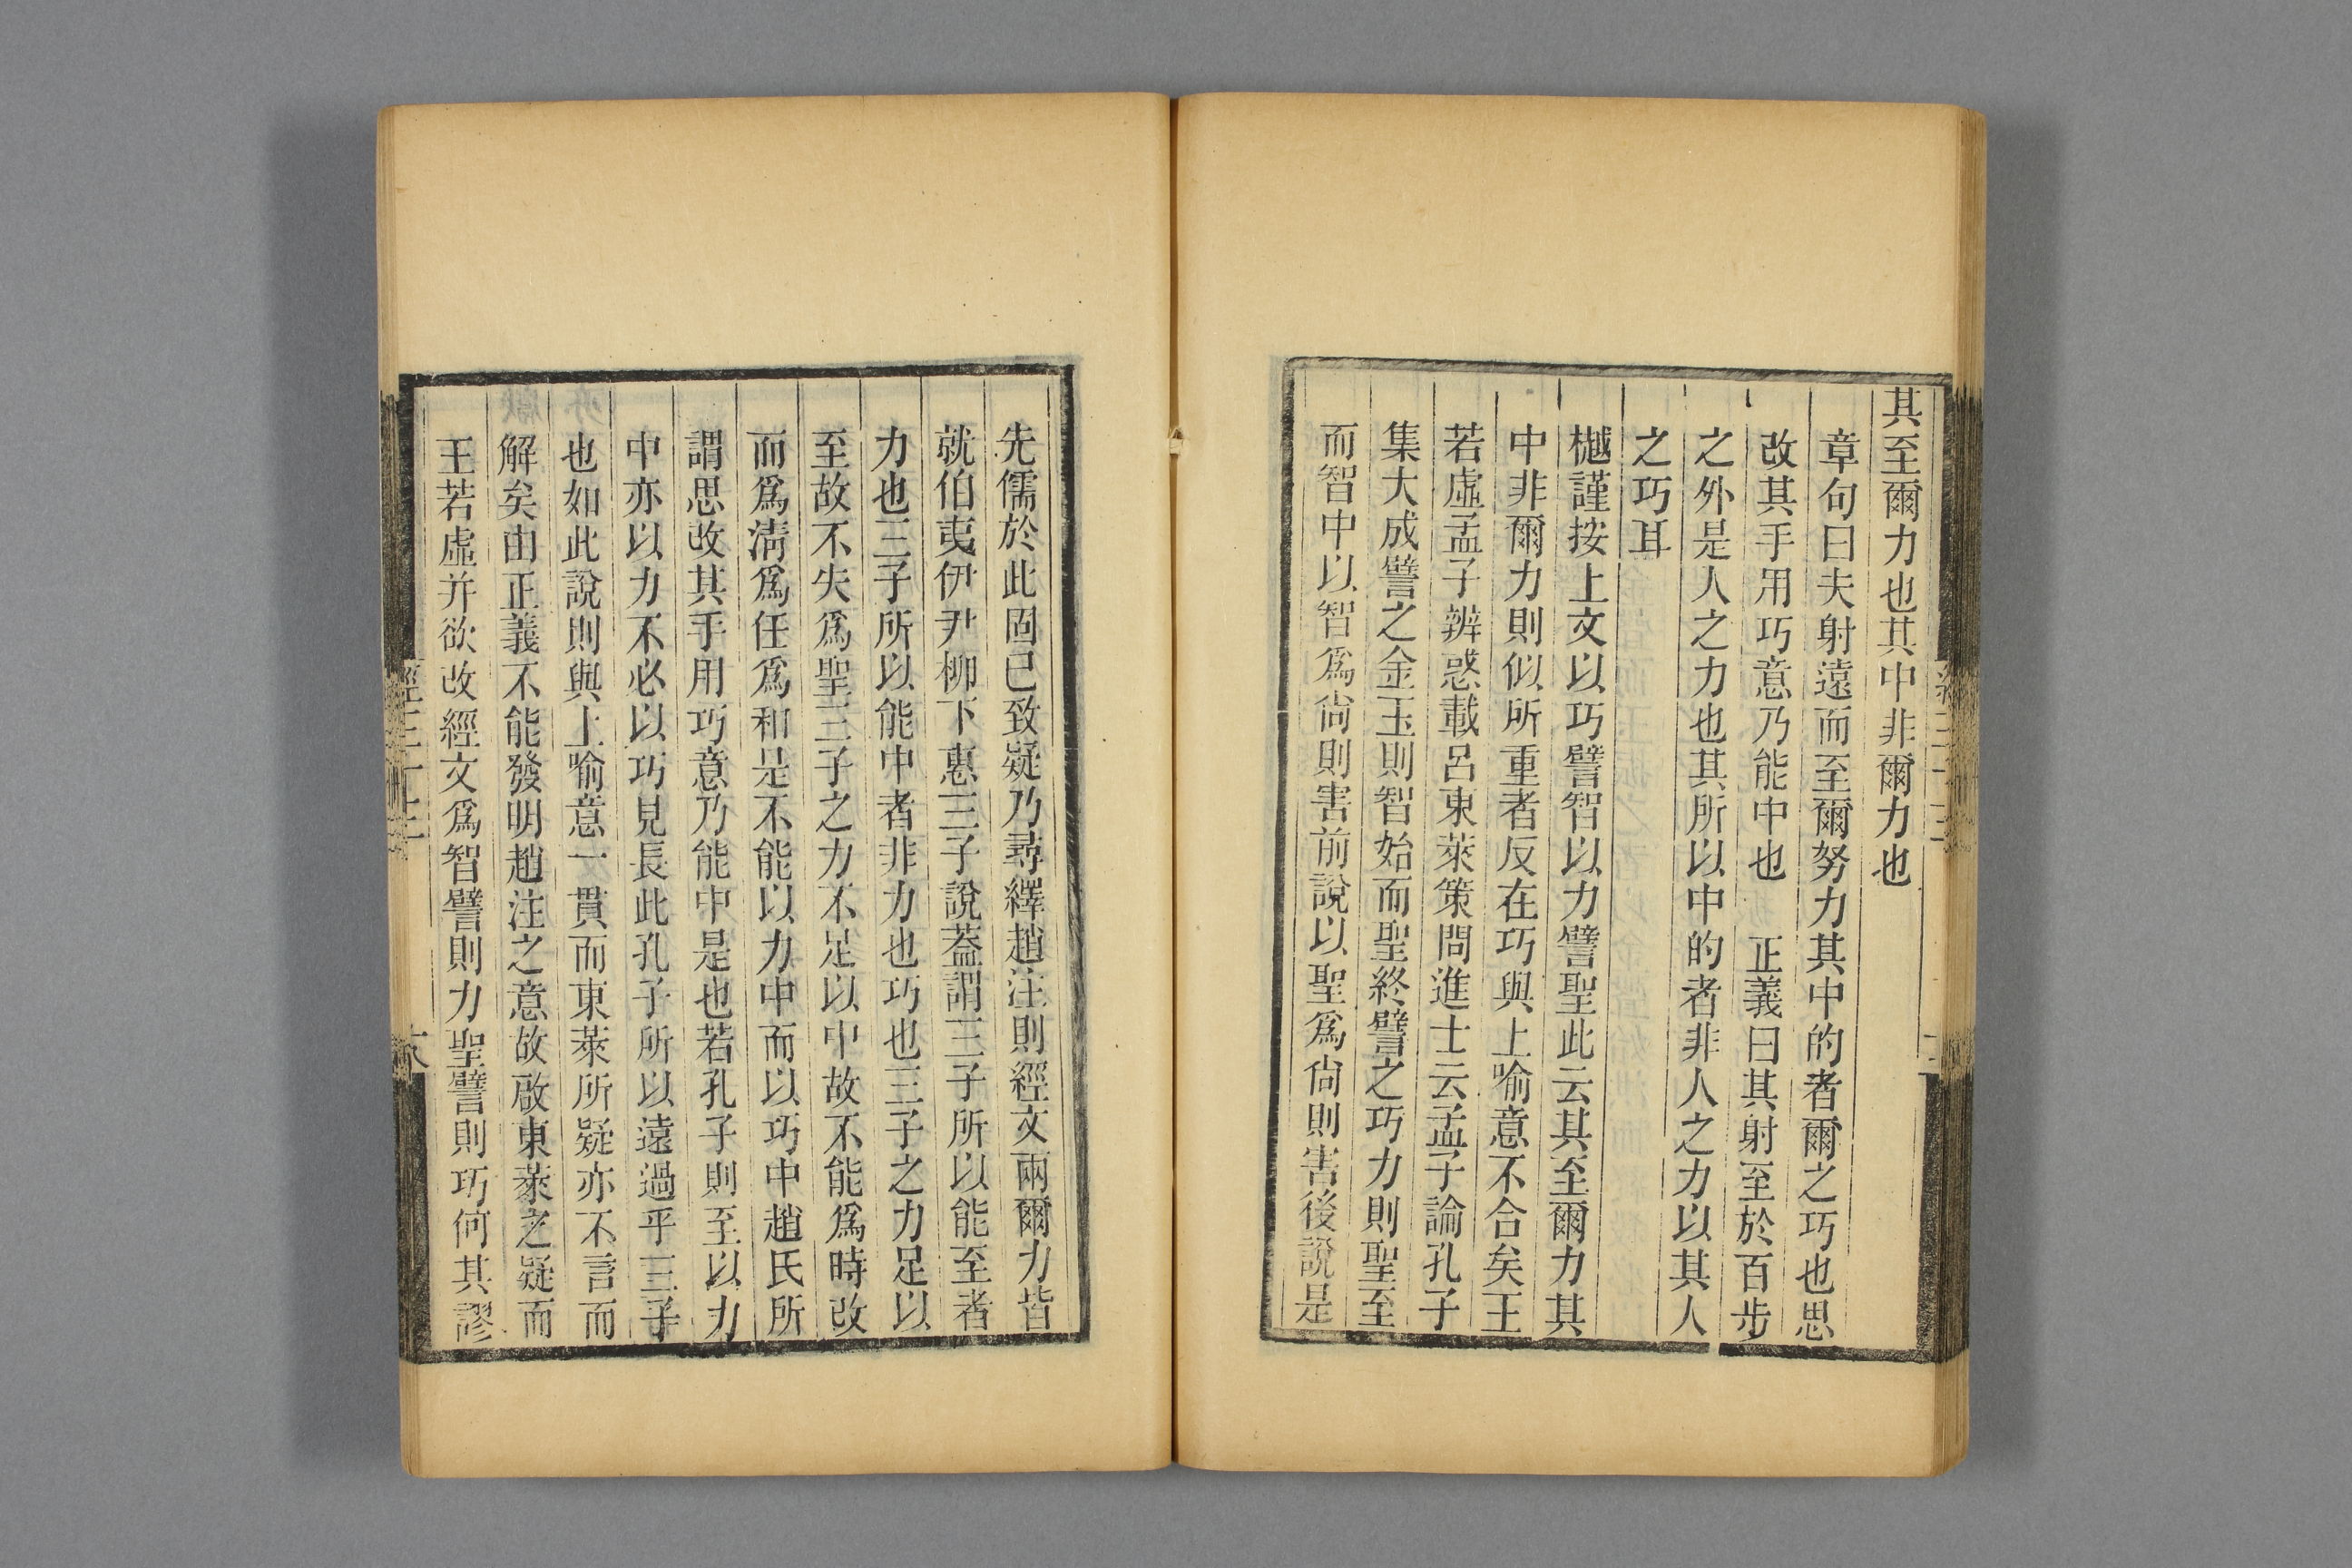 其至爾力也其中非爾力也
章句曰夫射遠而至爾努力其中的者爾之巧也思
改其手用巧意乃能中也　正義曰其射至於百步
之外是人之力也其所以中的者非人之力以其人
之巧耳
樾謹按上文以巧譬智以力譬聖此云其至爾力其
中非爾力則似所重者反在巧與上喻意不合矣王
若虛孟子辨惑載呂東萊策問進士云孟子論孔子
集大成譬之金玉則智始而聖終譬之巧力則聖至
而智中以智爲尙則害前說以聖爲尙則害後說是
先儒於此固已致疑乃尋繹趙注則經文兩爾力皆
就伯夷伊尹柳下惠三子說葢謂三子所以能至者
力也三子所以能中者非力也巧也三子之力足以
至故不失爲聖三子之力不足以中故不能爲時改
而爲淸爲任爲和是不能以力中而以巧中趙氏所
謂思改其手用巧意乃能中是也若孔子則至以力
中亦以力不必以巧見長此孔子所以遠過乎三子
也如此說則與上喻意一貫而東萊所疑亦不言而
解矣由正義不能發明趙注之意故啟東萊之疑而
王若虛并欲改經文爲智譬則力聖譬則巧何其謬
經三十三